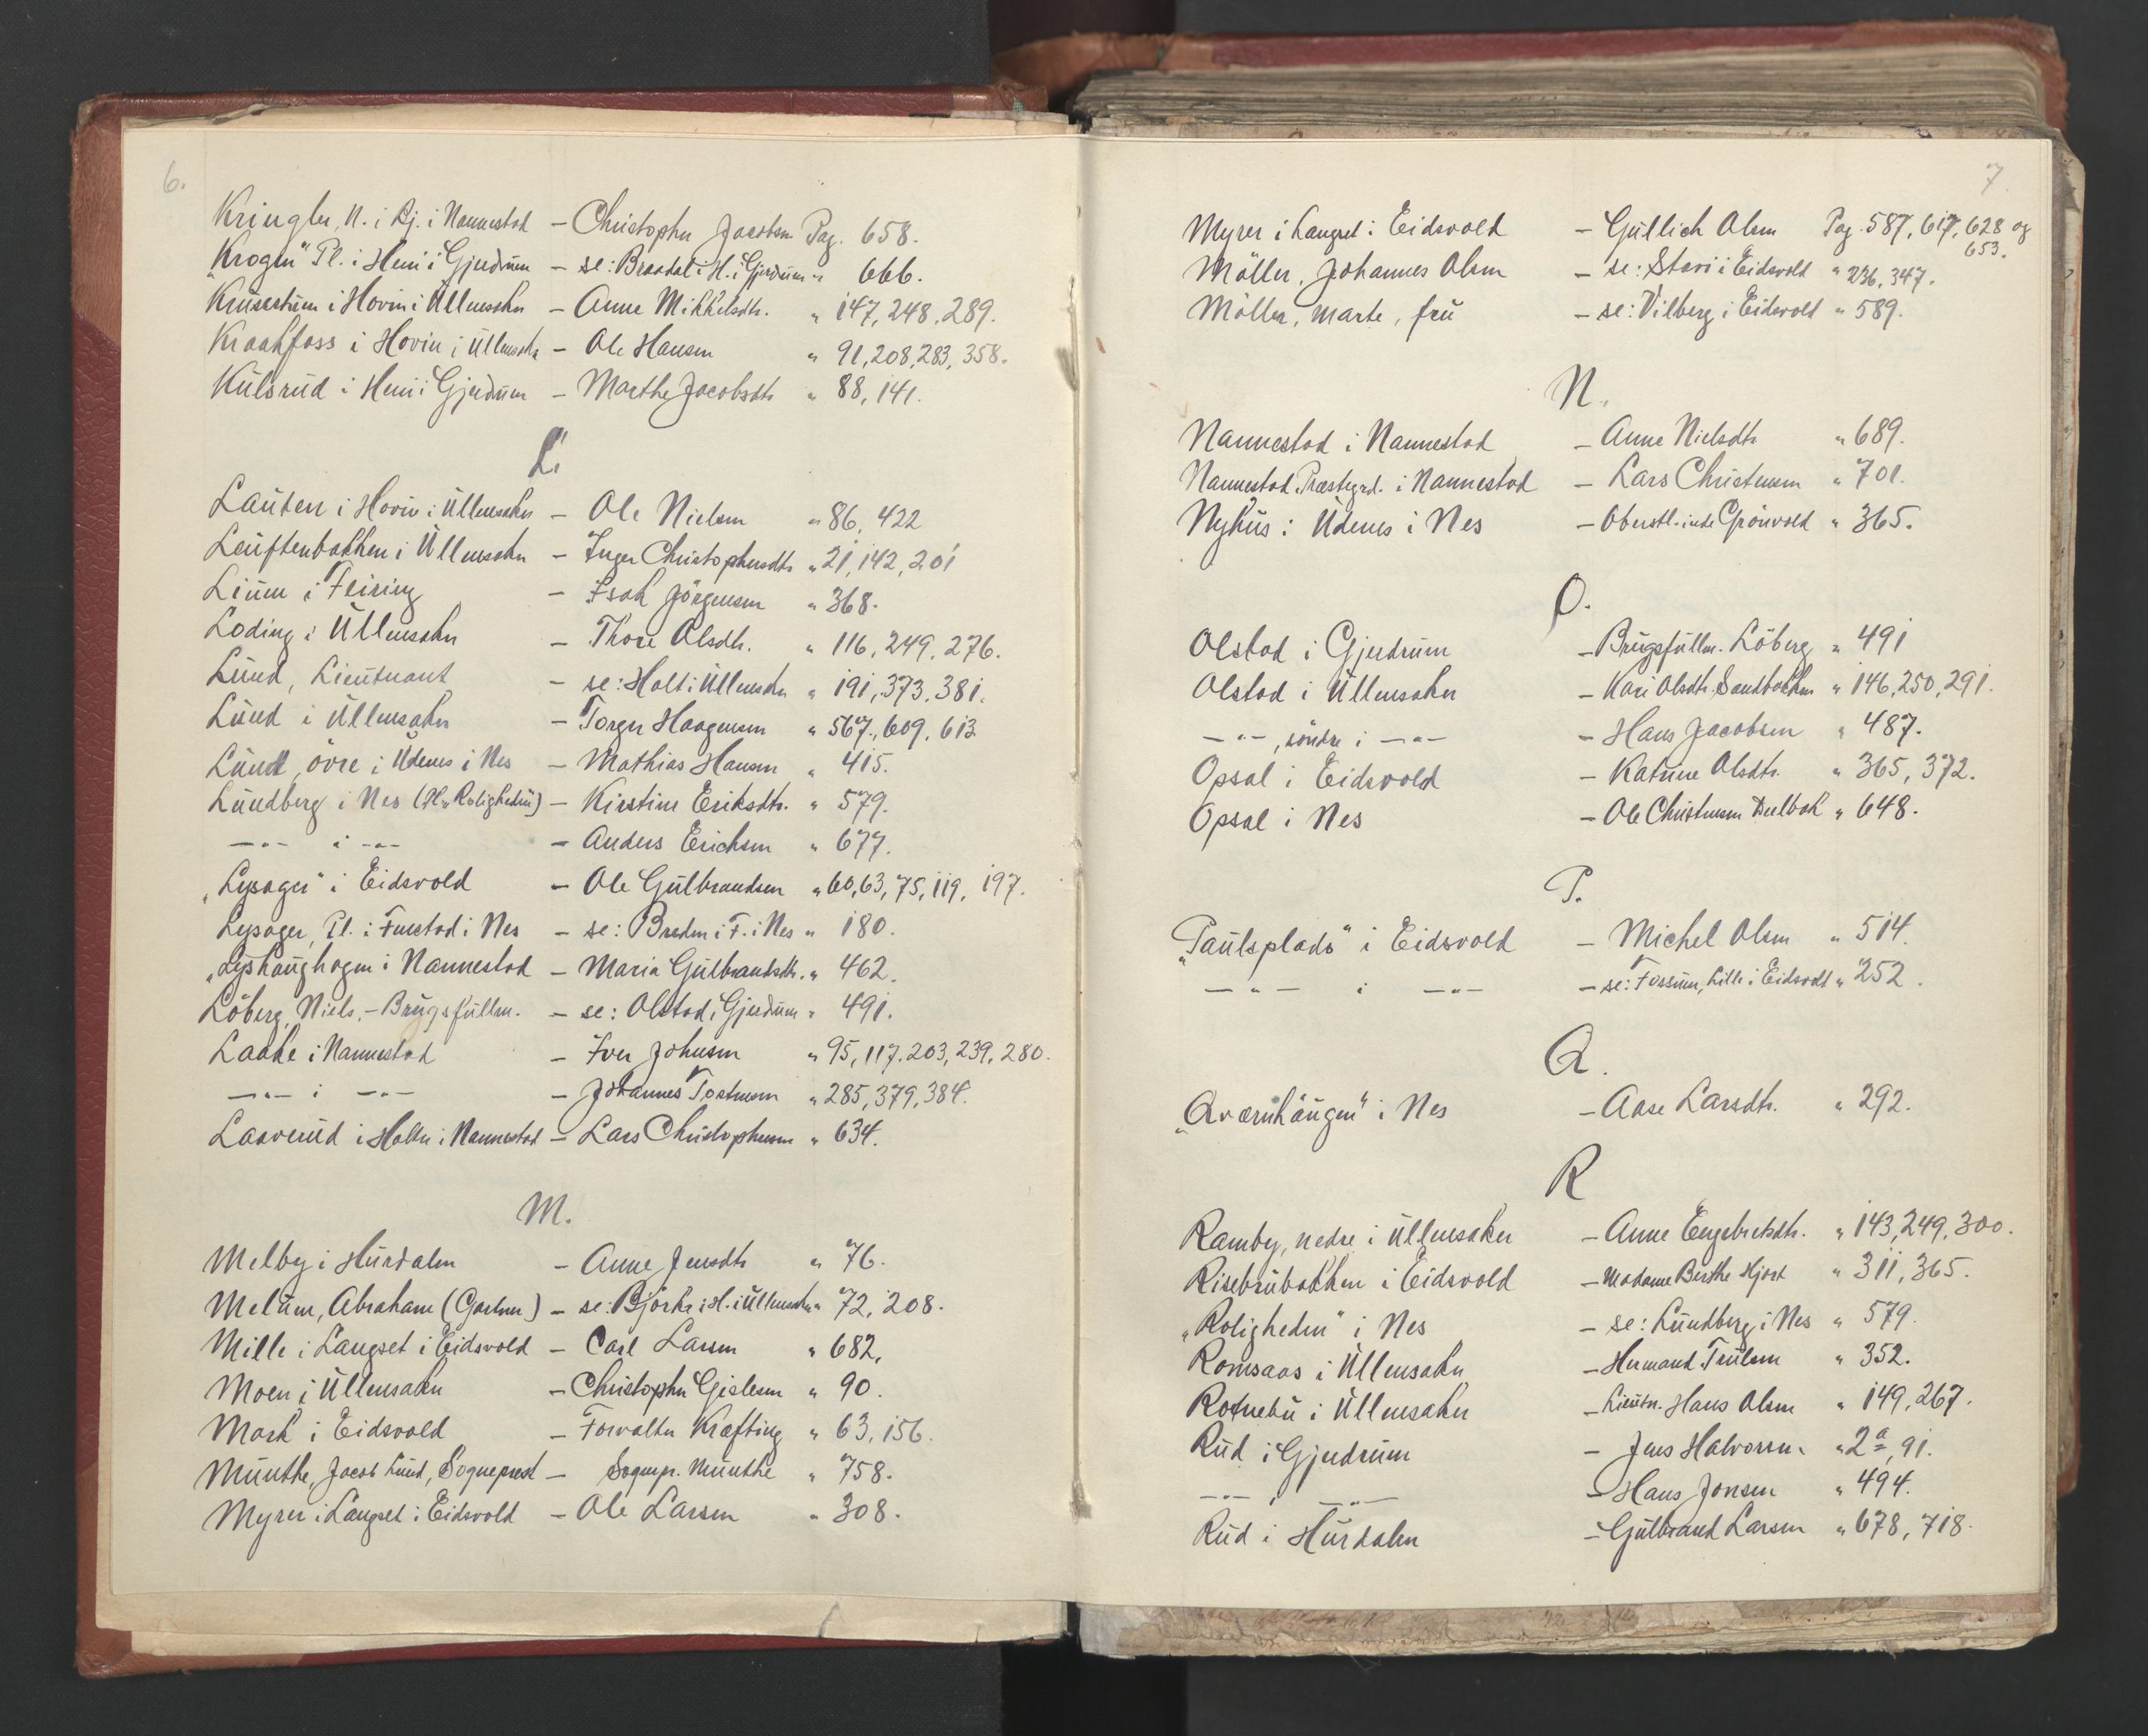 6.
Kringler, N. i Bj. i Nannestad – Christopher Jacobsen Pag. 658.
"Krogen" Pl. i Heni i Gjerdrum – se: Braadal i H. i Gjerdrum " 666.
Krusestuen i Hovin i Ullensaker – Anne Mikkelsdtr. " 147, 248, 289.
Kraakfoss i Hovin i Ullensaker – Ole Hansen " 91, 208, 283, 358.
Kulsrud i Heni i Gjerdrum – Marthe Jacobsdtr " 88, 141.
L.
Lauten i Hovin i Ullensaker – Ole Nielsen " 86, 422
Lauftenbakken i Ullensaker – Inger Christophersdtr " 21, 142, 201
Lium i Feiring – Isak Jörgensen " 368.
Loding i Ullensaker – Thore Olsdtr. " 116, 249, 276.
Lund, Lieutnant – se: Holt i Ullensaker " 191, 373, 381.
Lund i Ullensaker – Torger Haagensen " 567, 609, 613
Lund, övre i Udenes i Nes – Mathias Hansen " 415.
Lundberg i Nes (Pl. Roligheden) – Kirstine Eriksdtr. " 579.
—"— i —"— – Anders Erichsen " 677.
"Lysager" i Eidsvold – Ole Gulbrandsen " 60, 63, 75, 119, 197.
Lysager, Pl. i Fenstad i Nes – se: Breden i F. i Nes " 180.
"Lyshaughagen i Nannestad – Maria Gulbrandsdtr. " 462.
Löberg, Niels, – Brugsfullm. – se: Olstad i Gjerdrum " 491.
Laake i Nannestad – Iver Johnsen " 95, 117, 203, 239, 280.
—"— i —"— – Johannes Tostensen " 285, 379, 384.
Laaverud i Holter i Nannestad – Lars Christophersen " 634.
M.
Melby i Hurdalen – Anne Jensdtr " 76.
Melum, Abraham (Gartner) – se: Björke i H. i Ullensaker " 72, 208.
Mille i Langset i Eidsvold – Carl Larsen " 682.
Moen i Ullensaker – Christopher Gislesen " 90.
Mork i Eidsvold – Forvalter Krafting " 63, 156.
Munthe, Jacob Lund, Sogneprest – Sognepr. Munthe " 758.
Myrer i Langset i Eidsvold – Ole Larsen " 308.
7.
Myrer i Langset i Eidsvold – Gullich Olsen Pag. 587, 617, 628 og
653.
Möller, Johannes Olsen – se: Stavi i Eidsvold " 236, 347.
Möller, Marte, fru – se: Vilberg i Eidsvold " 589.
N.
Nannestad i Nannestad – Anne Nielsdtr " 689.
Nannestad Præstegrd. i Nannestad – Lars Christensen " 701.
Nyhus i Udenes i Nes – Oberstl.inde Grönvold " 365.
O.
Olstad i Gjerdrum – Brugsfullm. Löberg " 491
Olstad i Ullensaker – Kari Olsdtr. Sandbakken " 146, 250, 291.
—"—, söndre i —"— – Hans Jacobsen " 487.
Opsal i Eidsvold – Katrine Olsdtr. " 365, 372.
Opsal i Nes – Ole Christensen Deelbak " 648.
P.
"Paulsplads" i Eidsvold – Michel Olsen " 514.
—"— i —"— – se: Fossum, Lille i Eidsvold " 252.
Q.
"Qværnhaugen" i Nes – Aase Larsdtr. " 292.
R
Ramby, nedre i Ullensaker – Anne Engebretsdtr. " 143, 249, 300.
Risebrubakken i Eidsvold – Madame Berthe Hjort " 311, 365.
"Roligheden" i Nes – se: Lundberg i Nes " 579.
Romsaas i Ullensaker – Hermand Trulsen " 352.
Rotnebu i Ullensaker – Lieutn. Hans Olsen " 149, 267.
Rud i Gjerdrum – Jens Halvorsen " 2a, 91.
—"— i —"— – Hans Jonsen " 494.
Rud i Hurdalen – Gulbrand Larsen " 678, 718.